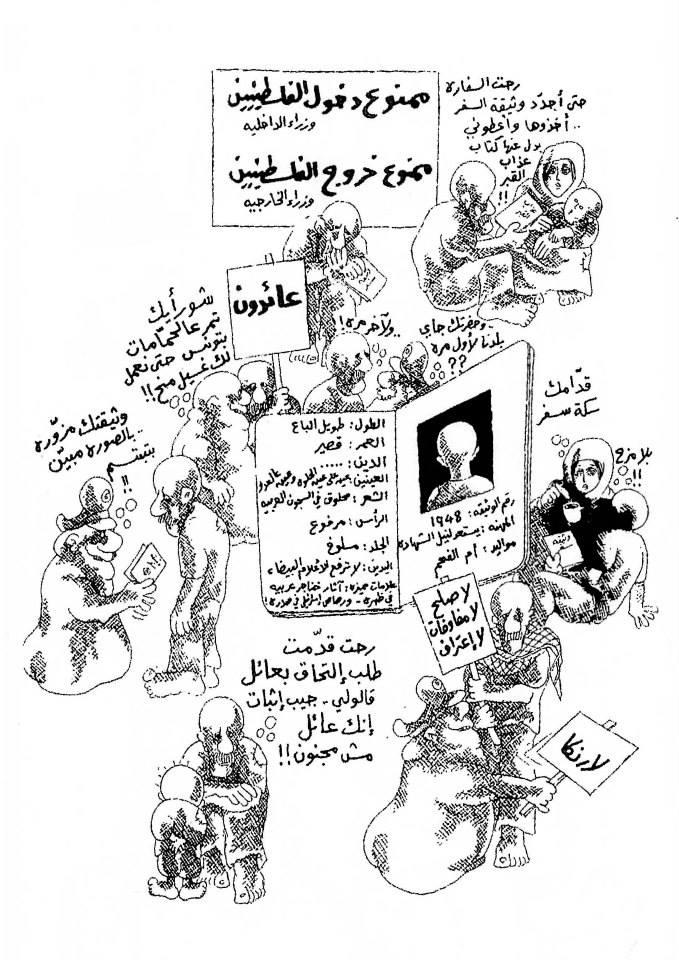 ممنوع دخول الفلسطينيين
وزراء الداخليه
ممنوع خروج الفلسطينيين
وزراء الخارجيه
رحت السفاره
حتى أجدّد وثيقة السفر
.. أخذوها وأعطوني
بدل عنها كتاب
عذاب
القبر
!!
عائدون
شو رأيك
تمر عالحمّامات
بتونس حتى نعمل
لك غسيل مخ!!
ولآخر مره!
وحضرتك جاي
بلدنا لأول مره
??
وثيقتك مزوّره
.. بالصوره مبيّن
بتبتسم
!!
قدّامك
سكة سفر
بلا مزح
!!
الطول: طويل الباع
العمر: قصير
الدين: .....
العينين:
الشعر: محلوق في السجون العربيه
الرأس: مرفوع
الجلد: مسلوخ
اليدين: لا ترفع الأعلام البيضاء
علامات مميزه: آثار خناجر عربيه
في ظهره - ورصاص إسرائيلي في صدره!
رقم الوثيقه: 1948
المهنه: يستعد لنيل الشهاده
مواليد: أم الفحم
لا صلح
لا مفاوضات
لا إعتراف
لارنكا
رحت قدّمت
طلب إلتحاق بعائل
قالولي - جيب إثبات
إنك عائل
مش مجنون!!